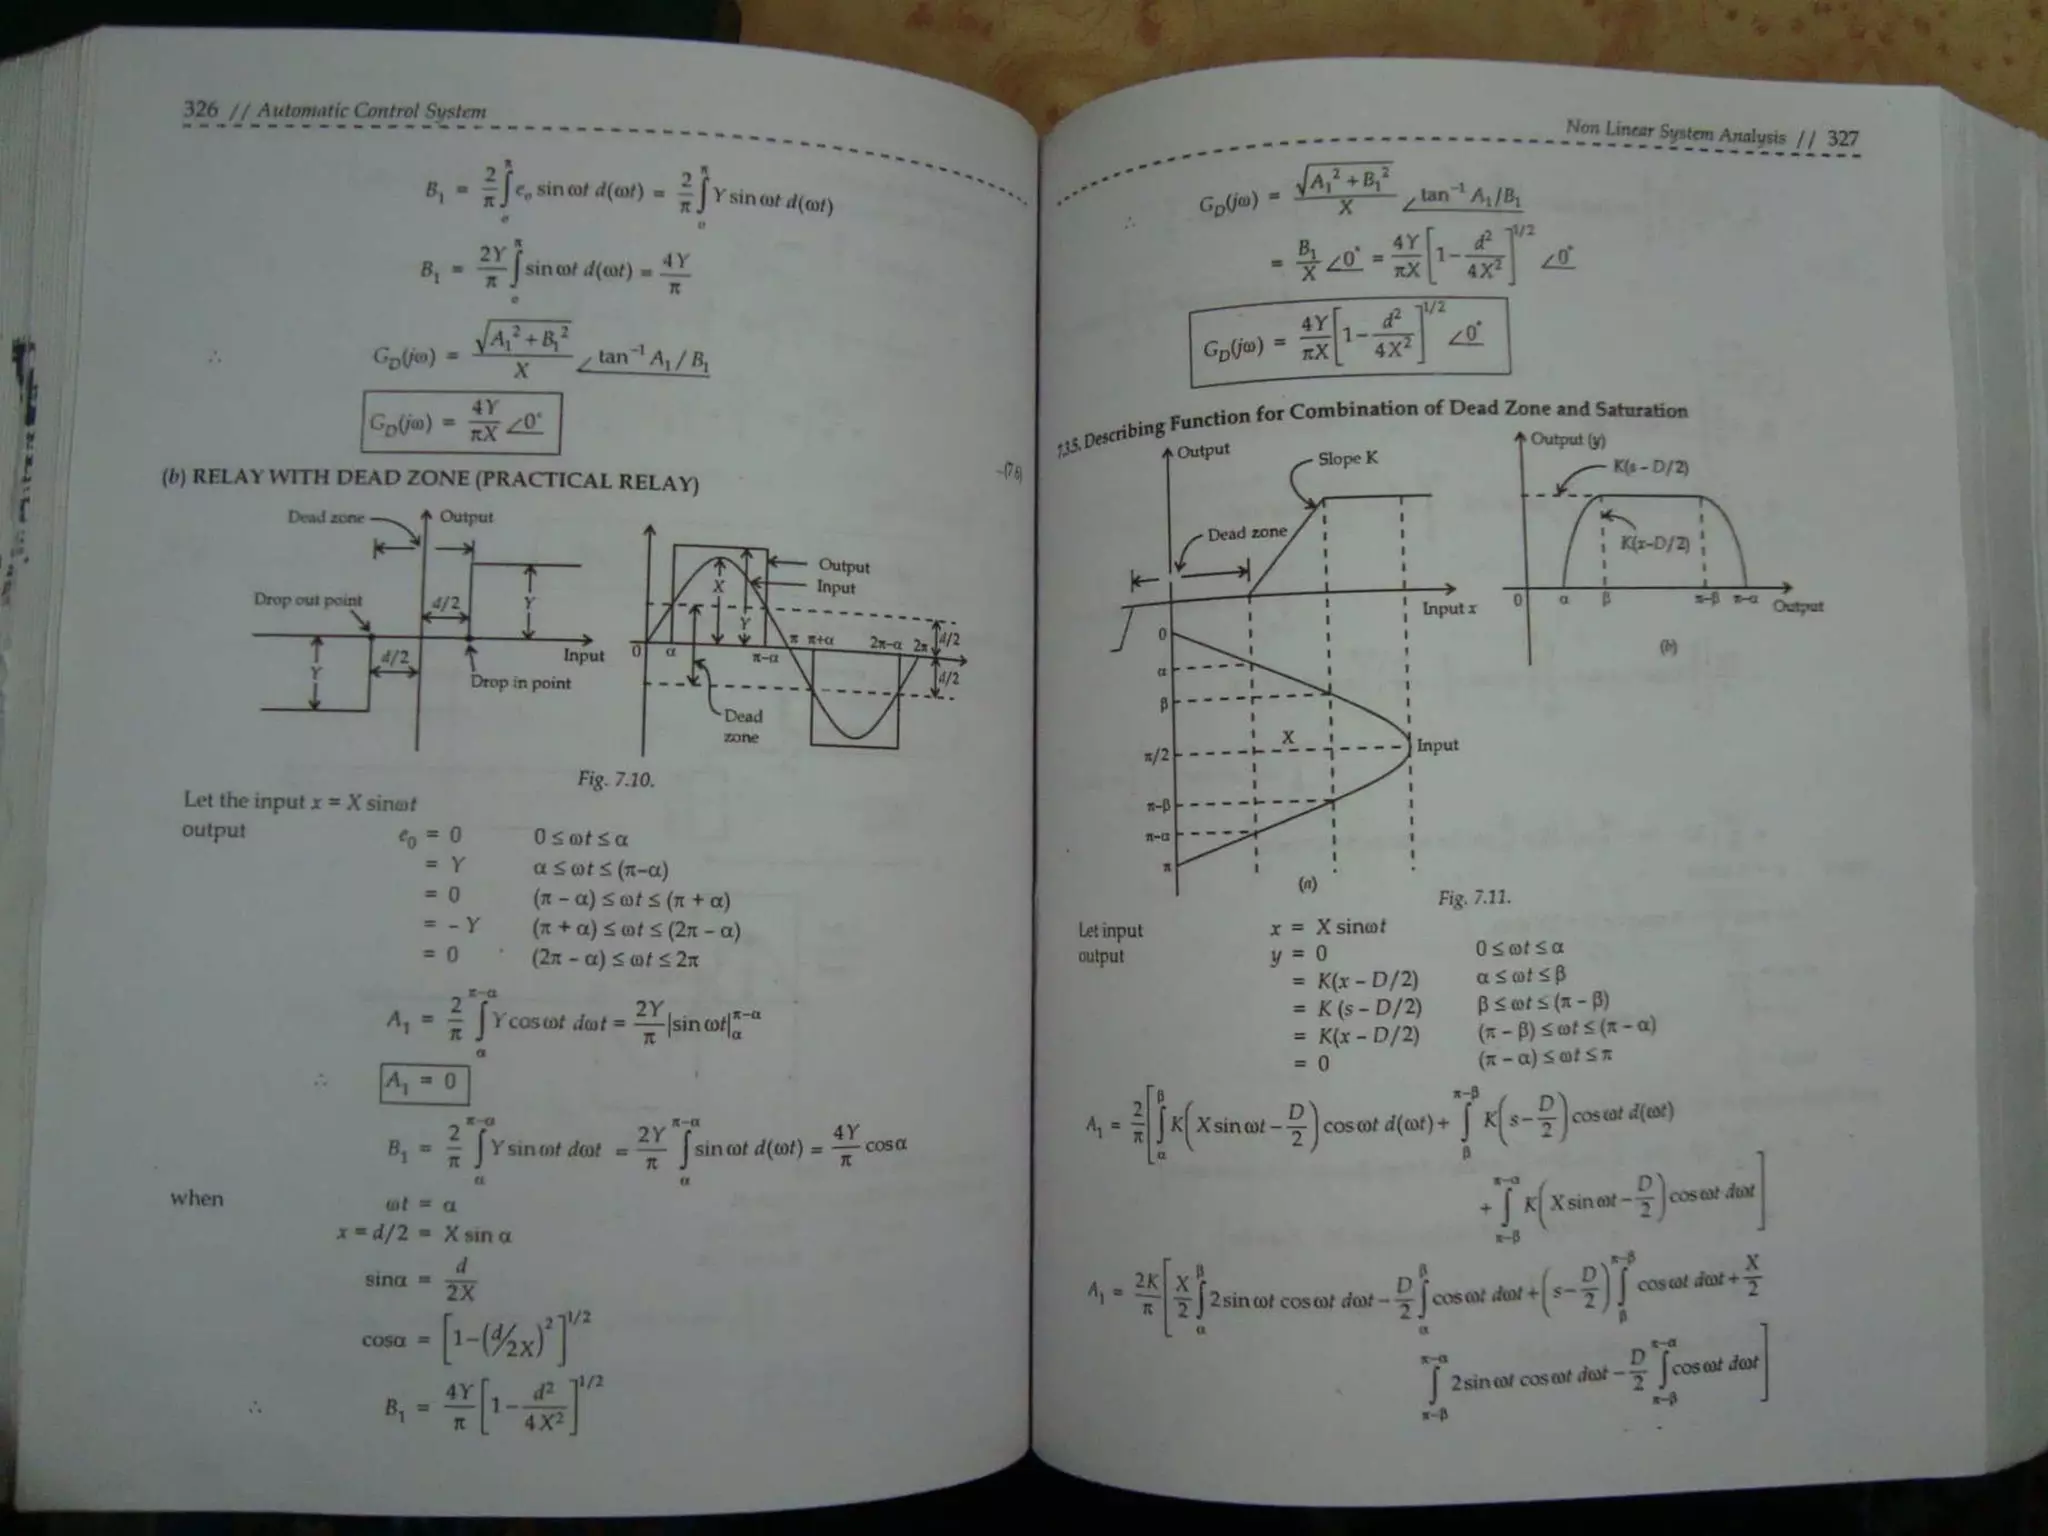 326 // Automatic Control System
B₁ = 2/π ∫₀^π eₒ sin ωt d(ωt) = 2/π ∫₀^π Y sin ωt d(ωt)
B₁ = 2Y/π ∫₀^π sin ωt d(ωt) = 4Y/π
∴ G_D(jω) = √(A₁² + B₁²)/X ∠tan⁻¹ A₁ / B₁
G_D(jω) = 4Y/πX ∠0°
(b) RELAY WITH DEAD ZONE (PRACTICAL RELAY)
Dead zone
Output
Drop out point
d/2
Y
Input
Y
d/2
Drop in point
X
Output
Input
Y
0 α π–α π π+α 2π–α 2π
d/2
d/2
Dead
zone
Fig. 7.10.
Let the input x = X sinωt
output e₀ = 0 0 ≤ ωt ≤ α
= Y α ≤ ωt ≤ (π–α)
= 0 (π – α) ≤ ωt ≤ (π + α)
= – Y (π + α) ≤ ωt ≤ (2π – α)
= 0 (2π – α) ≤ ωt ≤ 2π
A₁ = 2/π ∫_α^{π–α} Y cos ωt dωt = 2Y/π |sin ωt|_α^{π–α}
∴ A₁ = 0
B₁ = 2/π ∫_α^{π–α} Y sin ωt dωt = 2Y/π ∫_α^{π–α} sin ωt d(ωt) = 4Y/π cos α
when ωt = α
x = d/2 = X sin α
sinα = d/2X
cosα = [1–(d/2x)²]^{1/2}
∴ B₁ = 4Y/π [1– d²/4X²]^{1/2}
Non Linear System Analysis // 327
∴ G_D(jω) = √(A₁² + B₁²)/X ∠tan⁻¹ A₁/B₁
= B₁/X ∠0° = 4Y/πX [1– d²/4X²]^{1/2} ∠0°
G_D(jω) = 4Y/πX [1– d²/4X²]^{1/2} ∠0°
7.3.5. Describing Function for Combination of Dead Zone and Saturation
Output
Slope K
Dead zone
Input x
0
α
β
π/2
π–β
π–α
π
X
Input
(a)
Output (y)
K(s – D/2)
K(x–D/2)
0 α β π–β π–α Output
(b)
Fig. 7.11.
Let input x = X sinωt
output y = 0 0 ≤ ωt ≤ α
= K(x – D/2) α ≤ ωt ≤ β
= K (s – D/2) β ≤ ωt ≤ (π – β)
= K(x – D/2) (π – β) ≤ ωt ≤ (π – α)
= 0 (π – α) ≤ ωt ≤ π
A₁ = 2/π [∫_α^β K(X sin ωt – D/2) cos ωt d(ωt) + ∫_β^{π–β} K(s – D/2) cos ωt d(ωt)
+ ∫_{π–β}^{π–α} K(X sin ωt – D/2) cos ωt dωt]
A₁ = 2K/π [X/2 ∫_α^β 2 sin ωt cos ωt dωt – D/2 ∫_α^β cos ωt dωt + (s – D/2) ∫_β^{π–β} cos ωt dωt + X/2
∫_{π–β}^{π–α} 2 sin ωt cos ωt dωt – D/2 ∫_{π–β}^{π–α} cos ωt dωt]